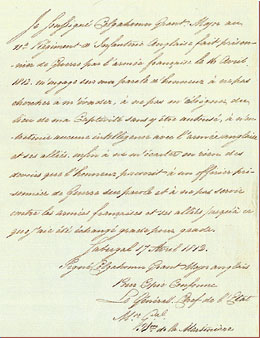 Je soussigné Colquhoun Grant Major au
11e Régiment d'Infanterie Anglaise fait prison-
-nier de Guerre par l'armée française le 16 Avril
1812. m'engage sous ma parole d'honneur à ne pas
chercher à m'évader, à ne pas m'éloigner du
lieu de ma Captivité sans y être autorisé, à n'en-
-tretenir aucune intelligence avec l'armée anglaise
et ses alliés, enfin à ne m'écarter en rien des
devoirs que l'honneur prescrit à un officier pri-
-sonnier de Guerre sur parole et à ne pas servir
contre les armées françaises et ses alliés jusqu'à ce
que j'aie été échangé grade pour grade.
Sabugal 17 Avril 1812.
Signé Colquhoun Grant Major anglais
Pour Copie Conforme
Le Général, Chef de l'Etat
Mor Gal
Bon de la Martinière